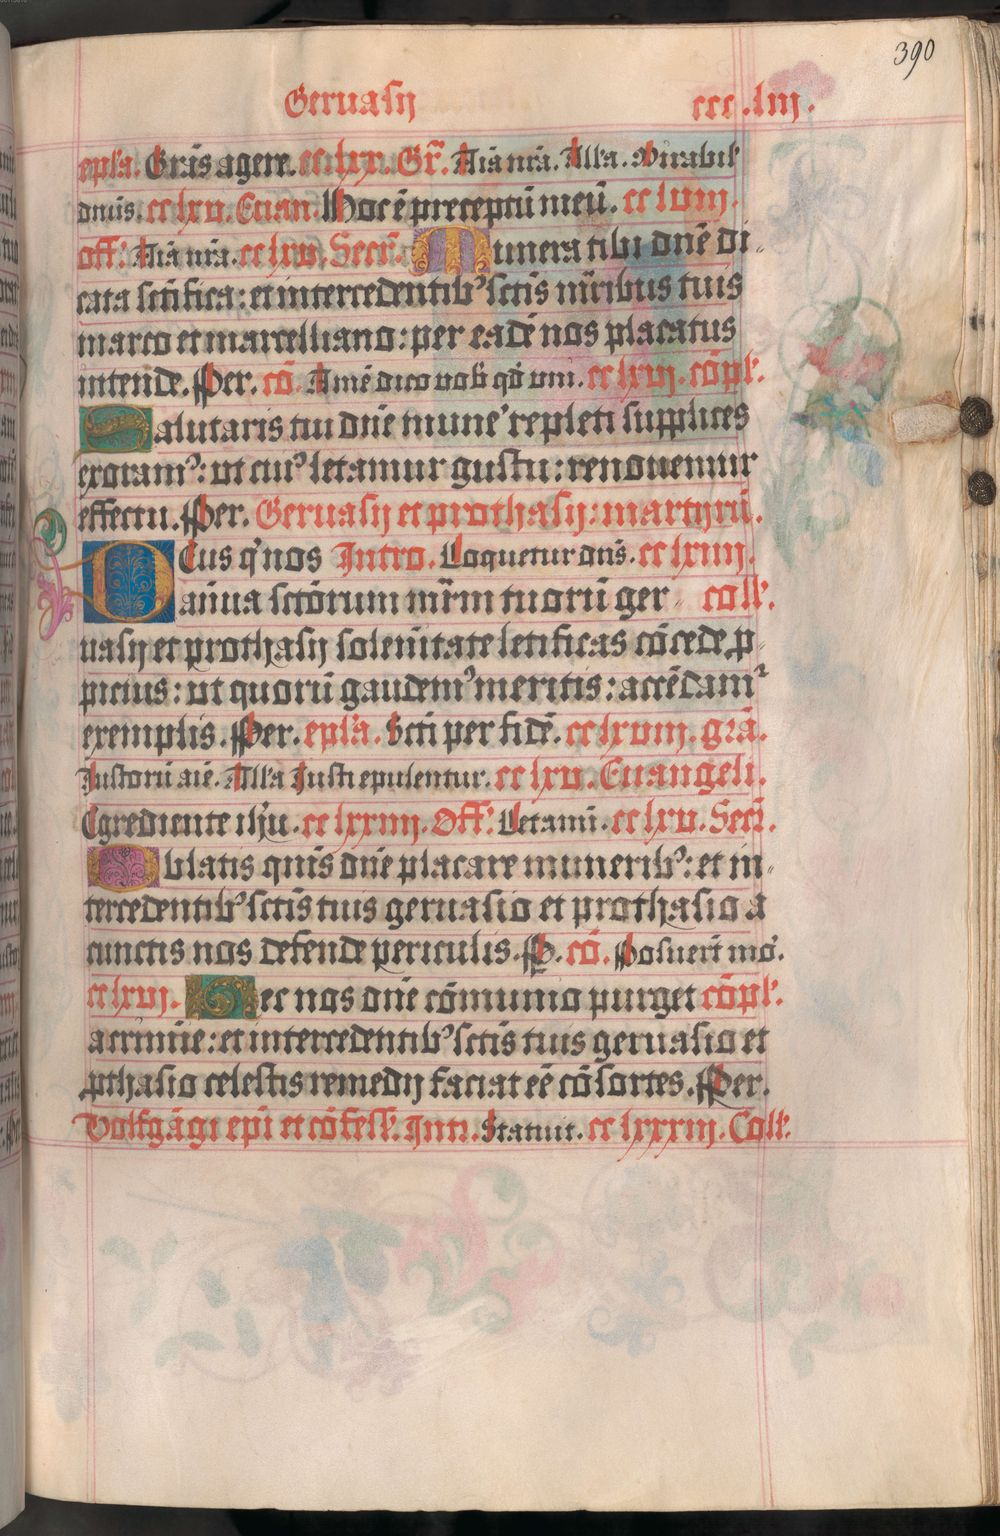 390
Geruasij ccc.liij.
ep̄la. Grās agere. cc lxx. Gr̄. Aīa nr̄a. Alla. Mirabil'
dn̄us. cc lxv. Euan. Hoc ē preceptū meū. cc lviij.
off. Aīa nr̄a. cc lxv. Secr̄. Munera tibi dn̄e di-
cata sc̄tifica: et intercedentibꝰ sc̄tis mr̄ibus tuis
marco et marcelliano: per eadē nos placatus
intende. Per. cō. Amē dico vob̄ qd̄ vni. cc lxvi. cōpl'.
Salutaris tui dn̄e mune' repleti supplices
exoramꝰ: ut cuiꝰ letamur gustu: renouemur
effectu. Per. Geruasij et prothasij: martyrū.
Deus q' nos Intro. Loquetur dn̄s. cc lxiiij.
añua sctōrum mr̄m tuorū ger coll'.
uasij et prothasij solen̄itate letificas cōcede ꝓ-
picius: ut quorū gaudemꝰ meritis: accēdamꝰ
exemplis. Per. ep̄la. Scti per fidē. cc lxviij. gra.
Justorū aīe. Alla Justi epulentur. cc lxv. Euangeli.
Egrediente ih̄u. cc lxxiiij. Off. Letamī. cc lxv. Secr̄.
Oblatis quīs dn̄e placare muneribꝰ: et in-
tercedentibꝰ sctīs tuis geruasio et prothasio a
cunctis nos defende periculis. P. cō. Posuerūt mo'.
cc lxvi. Hec nos dn̄e cōmunio purget cōpl'.
a crimine: et intercedentibꝰ sctīs tuis geruasio et
ꝓthasio celestis remedij faciat eē cōsortes. Per.
Volfgāgi epī et cōfess̄. Intr̄. Statuit. cc lxxxiij. Coll'.